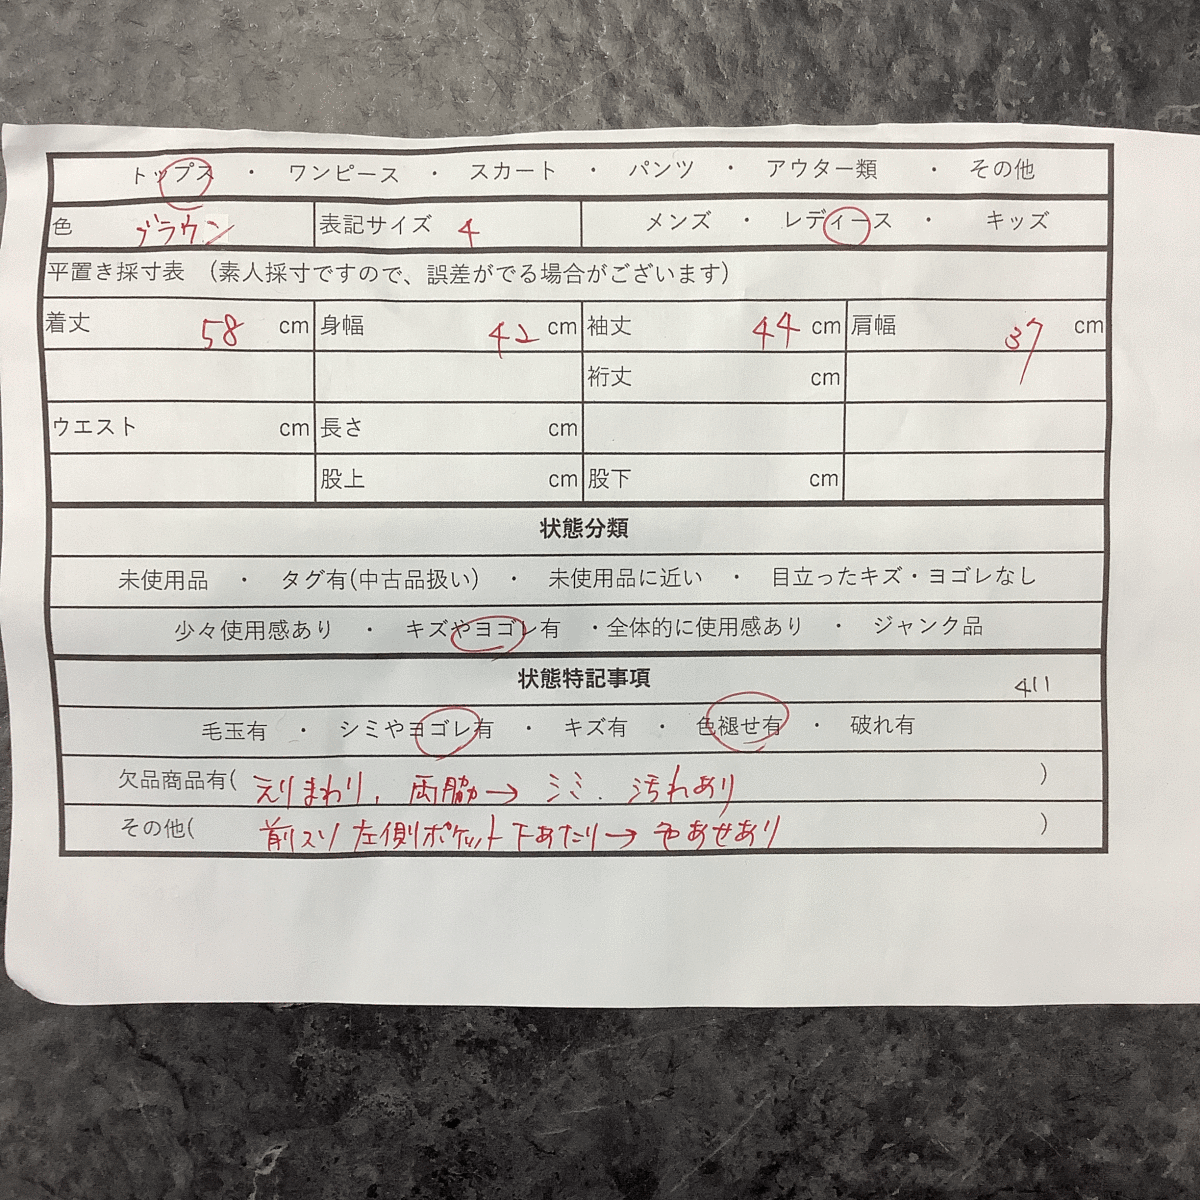 トップス ・ ワンピース ・ スカート ・ パンツ ・ アウター類 ・ その他
色 ブラウン 表記サイズ 4 メンズ ・ レディース ・ キッズ
平置き採寸表 (素人採寸ですので、誤差がでる場合がございます)
着丈 58 cm 身幅 42 cm 袖丈 44 cm 肩幅 37 cm
裄丈 cm
ウエスト cm 長さ cm
股上 cm 股下 cm
状態分類
未使用品 ・ タグ有(中古品扱い) ・ 未使用品に近い ・ 目立ったキズ・ヨゴレなし
少々使用感あり ・ キズやヨゴレ有 ・全体的に使用感あり ・ ジャンク品
状態特記事項
411
毛玉有 ・ シミやヨゴレ有 ・ キズ有 ・ 色褪せ有 ・ 破れ有
欠品商品有( えりまわり、両脇→ シミ、汚れあり )
その他( 前スソ 左側ポケット下あたり→色あせあり )